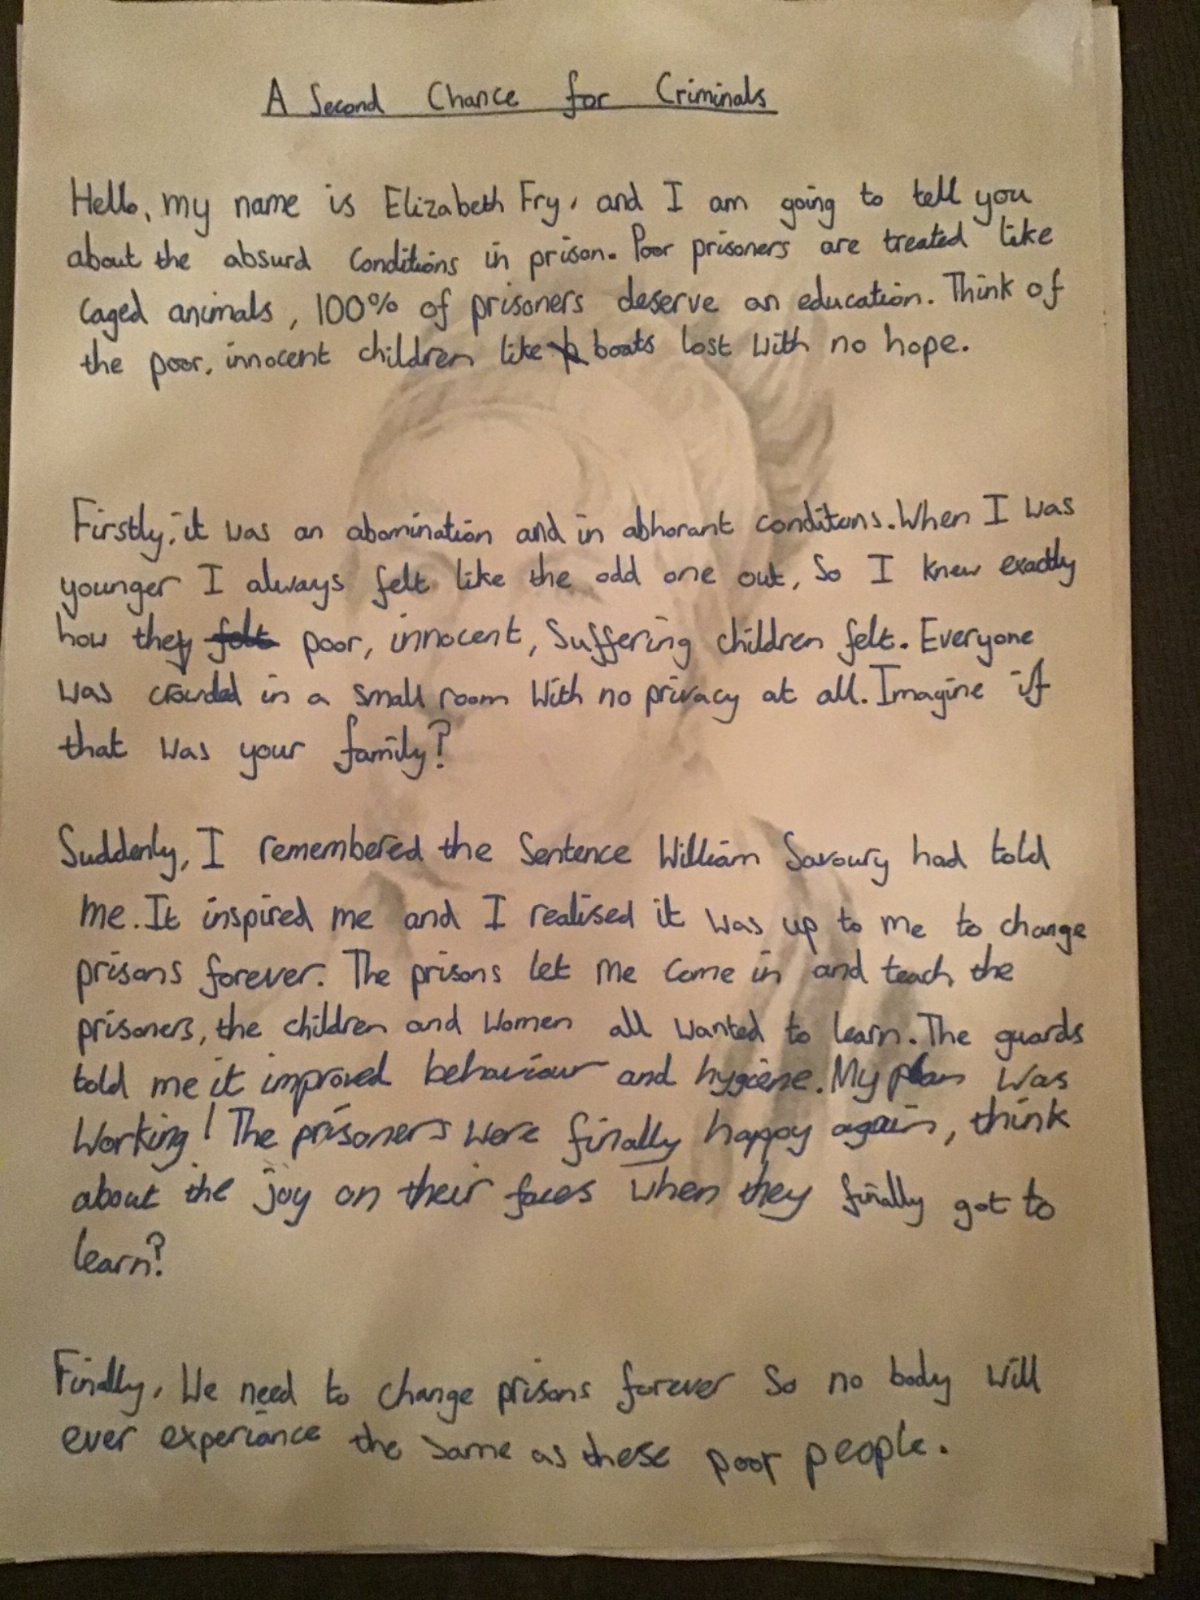 A Second Chance for Criminals
Hello, my name is Elizabeth Fry, and I am going to tell you
about the absurd conditions in prison. Poor prisoners are treated like
caged animals, 100% of prisoners deserve an education. Think of
the poor, innocent children like boats lost with no hope.
Firstly, it was an abomination and in abhorant conditons. When I was
younger I always felt like the odd one out, so I knew exactly
how they felt poor, innocent, suffering children felt. Everyone
was crowded in a small room with no privacy at all. Imagine if
that was your family?
Suddenly, I remembered the sentence William Savoury had told
me. It inspired me and I realised it was up to me to change
prisons forever. The prisons let me come in and teach the
prisoners, the children and women all wanted to learn. The guards
told me it improved behaviour and hygiene. My plan was
working! The prisoners were finally happy again, think
about the joy on their faces when they finally got to
learn?
Finally, we need to change prisons forever so no body will
ever experiance the same as these poor people.